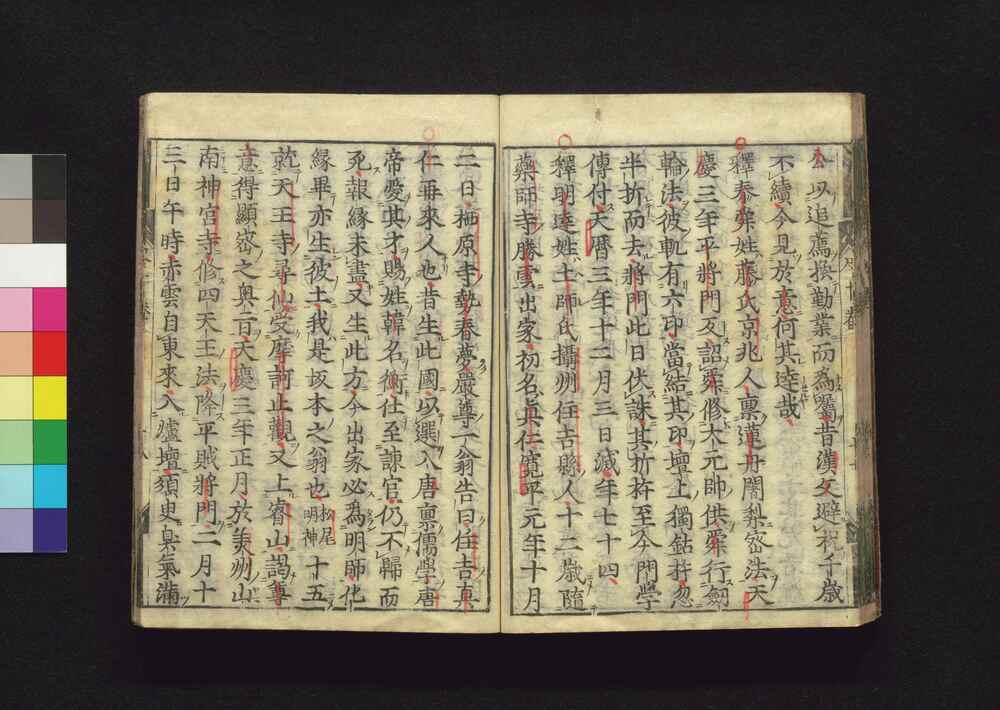 公以追薦揆勤業而為屬昔漢文避祚千歲
不續今見於意何其遠哉
釋泰舜姓藤氏京兆人稟蓮舟闍梨密法天
慶三年平將門反詔舜修大元帥供舜行劔
輪法彼軌有六印當結其印壇上獨鈷杵忽
半折而去將門此日伏誅其折杵至今門學
傳付天曆三年十二月三日滅年七十四
釋明達姓土師氏攝州住吉縣人十二歲隨
藥師寺勝雲出家初名真仁寬平元年十月
二日栖原寺勢春夢嚴尊一翁告曰住吉真
仁再來人也昔生此國以選入唐稟儒學唐
帝愛其才賜姓韓名衡仕至諫官仍不歸而
死報緣未盡又生此方今出家必為明師化
緣畢亦生彼土我是坂本之翁也松尾明神十五
就天王寺尋仙受摩訶止觀又上睿山謁尊
意得顯密之奧旨天慶三年正月於美州山
南神宮寺修四天王法降平賊將門二月十
三日午時赤雲自東來入爐壇須臾臭氣滿